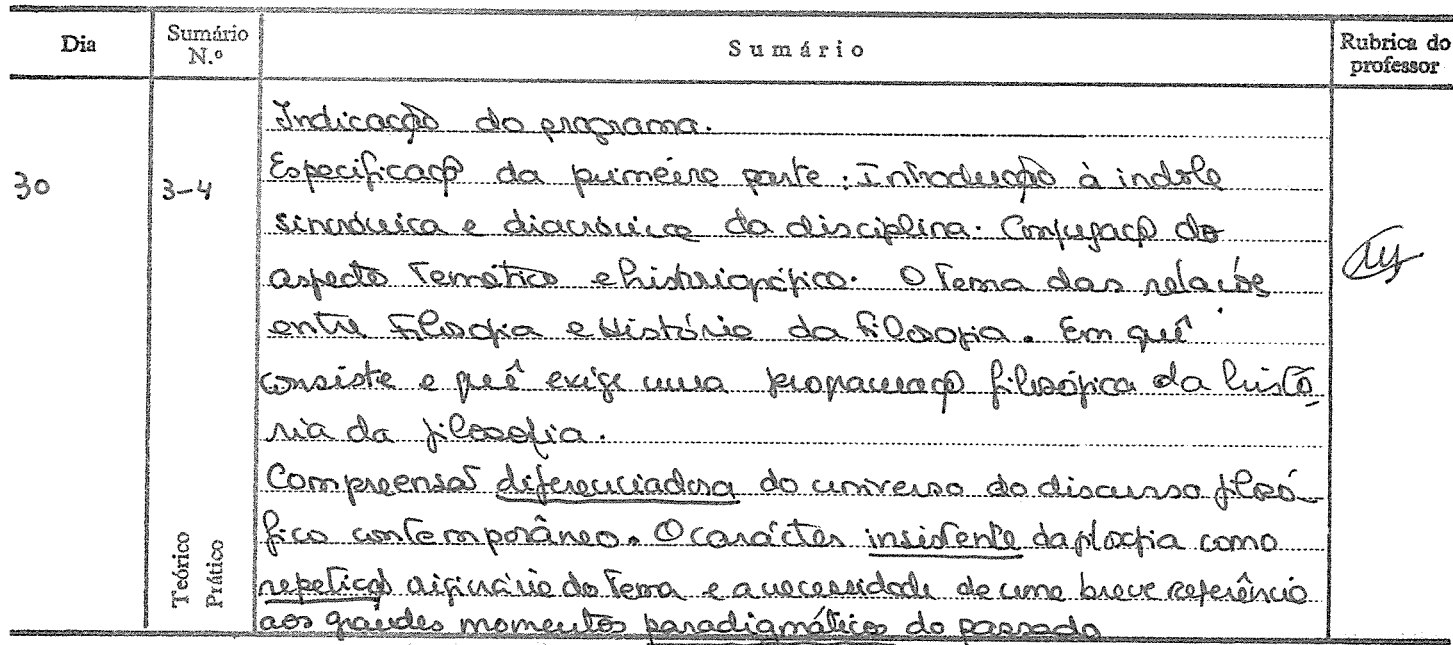 Dia Sumário N.º Sumário Rubrica do professor
Indicação do programa.
30 3-4 Especificação da primeira parte: Introdução à índole
sincrónica e diacrónica da disciplina. Conjugação do
aspecto temático e historiográfico. O tema das relações
entre Filosofia e História da filosofia. Em quê
consiste e quê exige uma preparação filosófica da histó-
ria da filosofia.
Compreensão diferenciadora do universo do discurso filosó-
fico contemporâneo. O carácter insistente da filosofia como
repetição originária do tema e a necessidade de uma breve referência
aos grandes momentos paradigmáticos do passado
Teórico
Prático